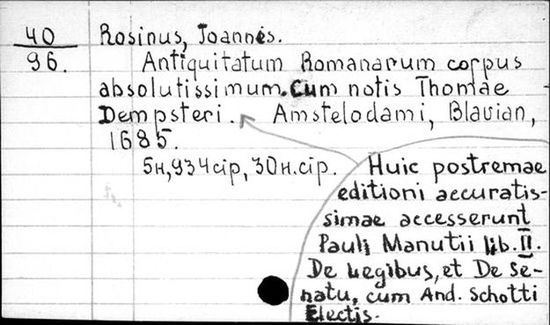 40
96.
Rosinus, Joannes.
Antiquitatum Romanarum corpus
absolutissimum. Cum notis Thomae
Dempsteri. Amstelodami, Blavian,
1685.
5н,934сір, 30н.сір.
Huic postremae
editioni accuratis-
simae accesserunt
Pauli Manutii lib. II.
De Legibus, et De Se-
natu, cum And. Schotti
Electis.